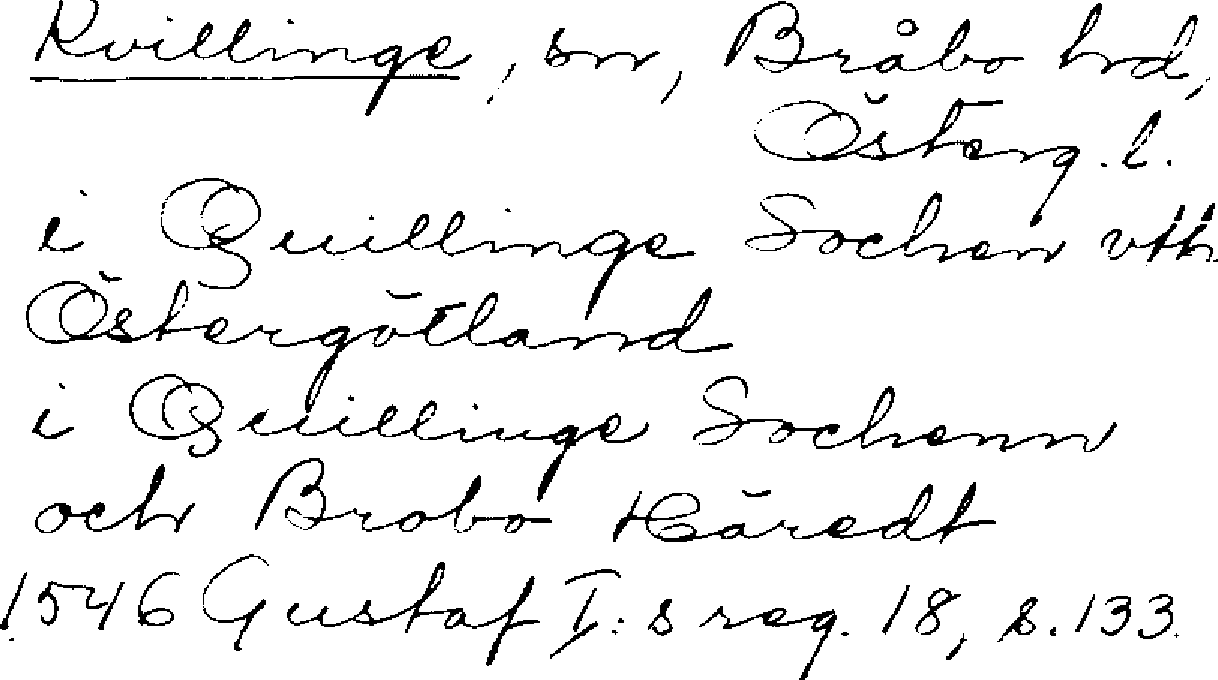 Kvillinge, sn, Bråbo hd,
Österg. l.
i Quillinge Sochen vthi
Östergötland
i Quillinge Sochenn
och Brobo Häredt
1546 Gustaf I:s reg. 18, s. 133.